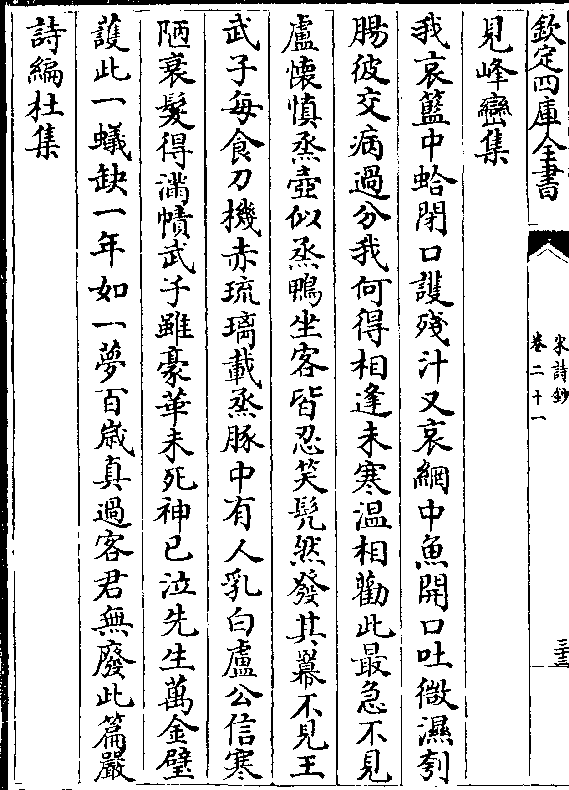 欽定四庫全書
宋詩鈔
卷二十一
三十三
見峰巒集
我哀籃中蛤閉口護殘汁又哀網中魚開口吐微濕刳
腸彼交病過分我何得相逢未寒温相勸此最急不見
盧懷慎烝壺似烝鴨坐客皆忍笑髡然發其羃不見王
武子每食刀機赤琉璃載烝豚中有人乳白盧公信寒
陋衰髮得滿幘武子雖豪華未死神已泣先生萬金璧
護此一蟻缺一年如一夢百歲真過客君無廢此篇嚴
詩編杜集